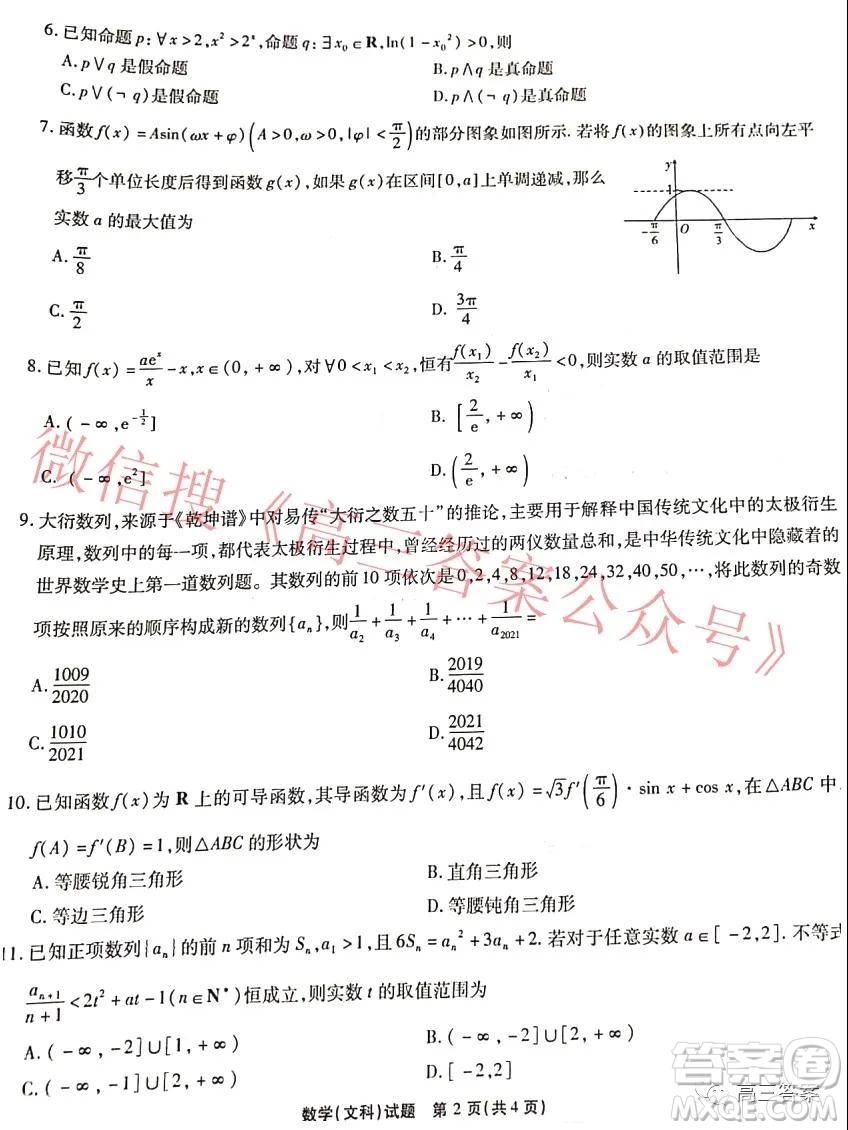 6. 已知命题 p:∀x>2,x²>2ˣ,命题 q:∃x₀∈R,ln(1-x₀²)>0,则
A. p∨q 是假命题 B. p∧q 是真命题
C. p∨(¬q)是假命题 D. p∧(¬q)是真命题
7. 函数 f(x)=Asin(ωx+φ)(A>0,ω>0,|φ|<π/2)的部分图象如图所示. 若将 f(x)的图象上所有点向左平
移 π/3 个单位长度后得到函数 g(x),如果 g(x)在区间[0,a]上单调递减,那么
实数 a 的最大值为
y
1
-π/6 O π/3 x
A. π/8 B. π/4
C. π/2 D. 3π/4
8. 已知 f(x)=aeˣ/x-x,x∈(0,+∞),对∀0<x₁<x₂,恒有 f(x₁)/x₂-f(x₂)/x₁<0,则实数 a 的取值范围是
A. (-∞,e^(-1/2)] B. [2/e,+∞)
C. (-∞,e²] D. (2/e,+∞)
9. 大衍数列,来源于《乾坤谱》中对易传“大衍之数五十”的推论,主要用于解释中国传统文化中的太极衍生
原理,数列中的每一项,都代表太极衍生过程中,曾经经历过的两仪数量总和,是中华传统文化中隐藏着的
世界数学史上第一道数列题。其数列的前 10 项依次是 0,2,4,8,12,18,24,32,40,50,…,将此数列的奇数
项按照原来的顺序构成新的数列{aₙ},则 1/a₂+1/a₃+1/a₄+…+1/a₂₀₂₁=
A. 1009/2020 B. 2019/4040
C. 1010/2021 D. 2021/4042
10. 已知函数 f(x)为 R 上的可导函数,其导函数为 f′(x),且 f(x)=√3f′(π/6)·sin x+cos x,在△ABC 中,
f(A)=f′(B)=1,则△ABC 的形状为
A. 等腰锐角三角形 B. 直角三角形
C. 等边三角形 D. 等腰钝角三角形
11. 已知正项数列{aₙ}的前 n 项和为 Sₙ,a₁>1,且 6Sₙ=aₙ²+3aₙ+2. 若对于任意实数 a∈[-2,2]. 不等式
aₙ₊₁/(n+1)<2t²+at-1(n∈N*)恒成立,则实数 t 的取值范围为
A. (-∞,-2]∪[1,+∞) B. (-∞,-2]∪[2,+∞)
C. (-∞,-1]∪[2,+∞) D. [-2,2]
数学(文科)试题 第 2 页(共 4 页)
微信搜《高三答案公众号》
答案圈
高三答案